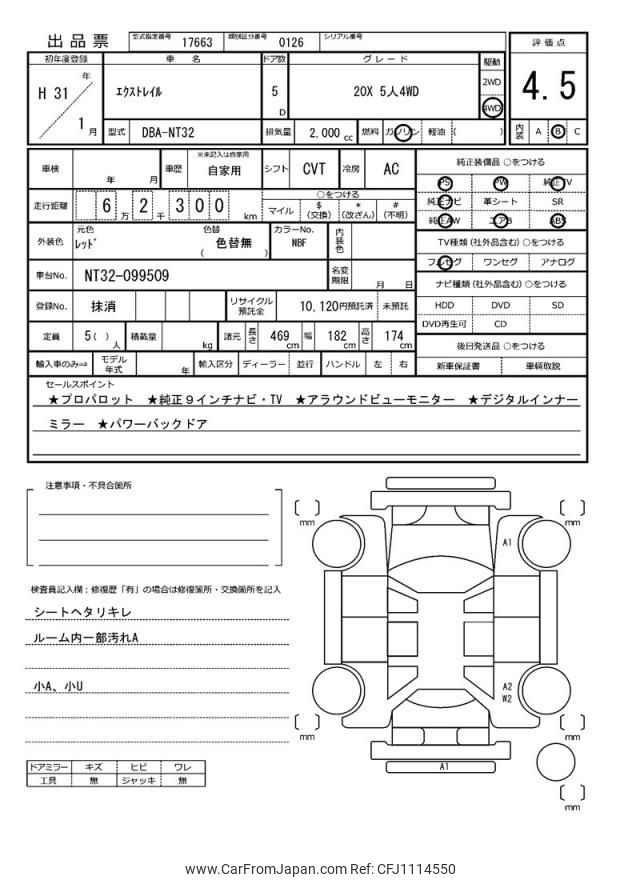 出品票 型式指定番号 17663 類別区分番号 0126 シリアル番号
評価点
4.5
内装 A B C
初年度登録 車名 ドア数 グレード 駆動
H 31 年 1 月
エクストレイル 5 D 20X 5人4WD 2WD 4WD
型式 DBA-NT32 排気量 2,000 cc 燃料 ガソリン 軽油 ( )
車検 年 月 車歴 ※未記入は自家用 自家用 シフト CVT 冷房 AC
走行距離 6 万 2 千 3 0 0 km
○をつける
マイル $ (交換) * (改ざん) # (不明)
外装色 元色 レッド 色替 ( 色替無 ) カラーNo. NBF 内装色
車台No. NT32-099509 名変期限 月 日
登録No. 抹消 リサイクル預託金 10,120円預託済 未預託
定員 5( ) 人 積載量 kg 諸元 長さ 469 cm 幅 182 cm 高さ 174 cm
輸入車のみ⇒ モデル年式 年 輸入区分 ディーラー 並行 ハンドル 左 右
純正装備品 ○をつける
PS PW 純正TV
純正ナビ 革シート SR
純正AW エアB ABS
TV種類 (社外品含む) ○をつける
フルセグ ワンセグ アナログ
ナビ種類 (社外品含む) ○をつける
HDD DVD SD
DVD再生可 CD
後日発送品 ○をつける
新車保証書 車輌取説
セールスポイント
★プロパロット ★純正９インチナビ・TV ★アラウンドビューモニター ★デジタルインナー
ミラー ★パワーバックドア
注意事項・不具合箇所
検査員記入欄：修復歴「有」の場合は修復箇所・交換箇所を記入
シートヘタリキレ
ルーム内一部汚れA
小A、小U
ドアミラー キズ ヒビ ワレ
工具 無 ジャッキ 無
mm
mm
A1
A2
W2
mm
mm
A1
mm
www.CarFromJapan.com Ref: CFJ1114550